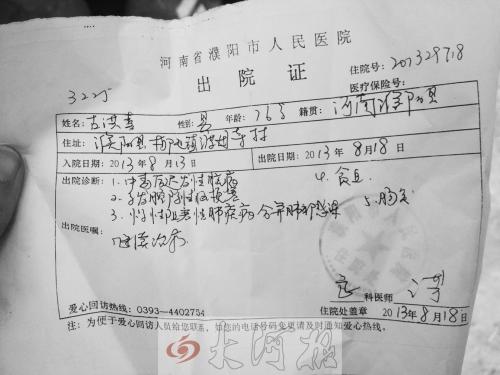 河南省濮阳市人民医院
住院号: 20132971８
出院证
医疗保险号:
姓名: 古洪喜 性别: 男 年龄: 76岁 籍贯: 河南濮阳县
住址: 濮阳县
入院日期: 2013年8月13日 出院日期: 2013年8月18日
出院诊断: 1.中毒后迟发性脑病 4.贫血
2.多发腔隙性脑梗塞
3.慢性阻塞性肺疾病合并肺部感染
出院医嘱:
科医师
爱心回访热线: 0393-4402754 住院处盖章 2013年8月18日
注: 为便于爱心回访人员给您联系, 如您的电话号码变更请及时通知爱心热线。
大河报